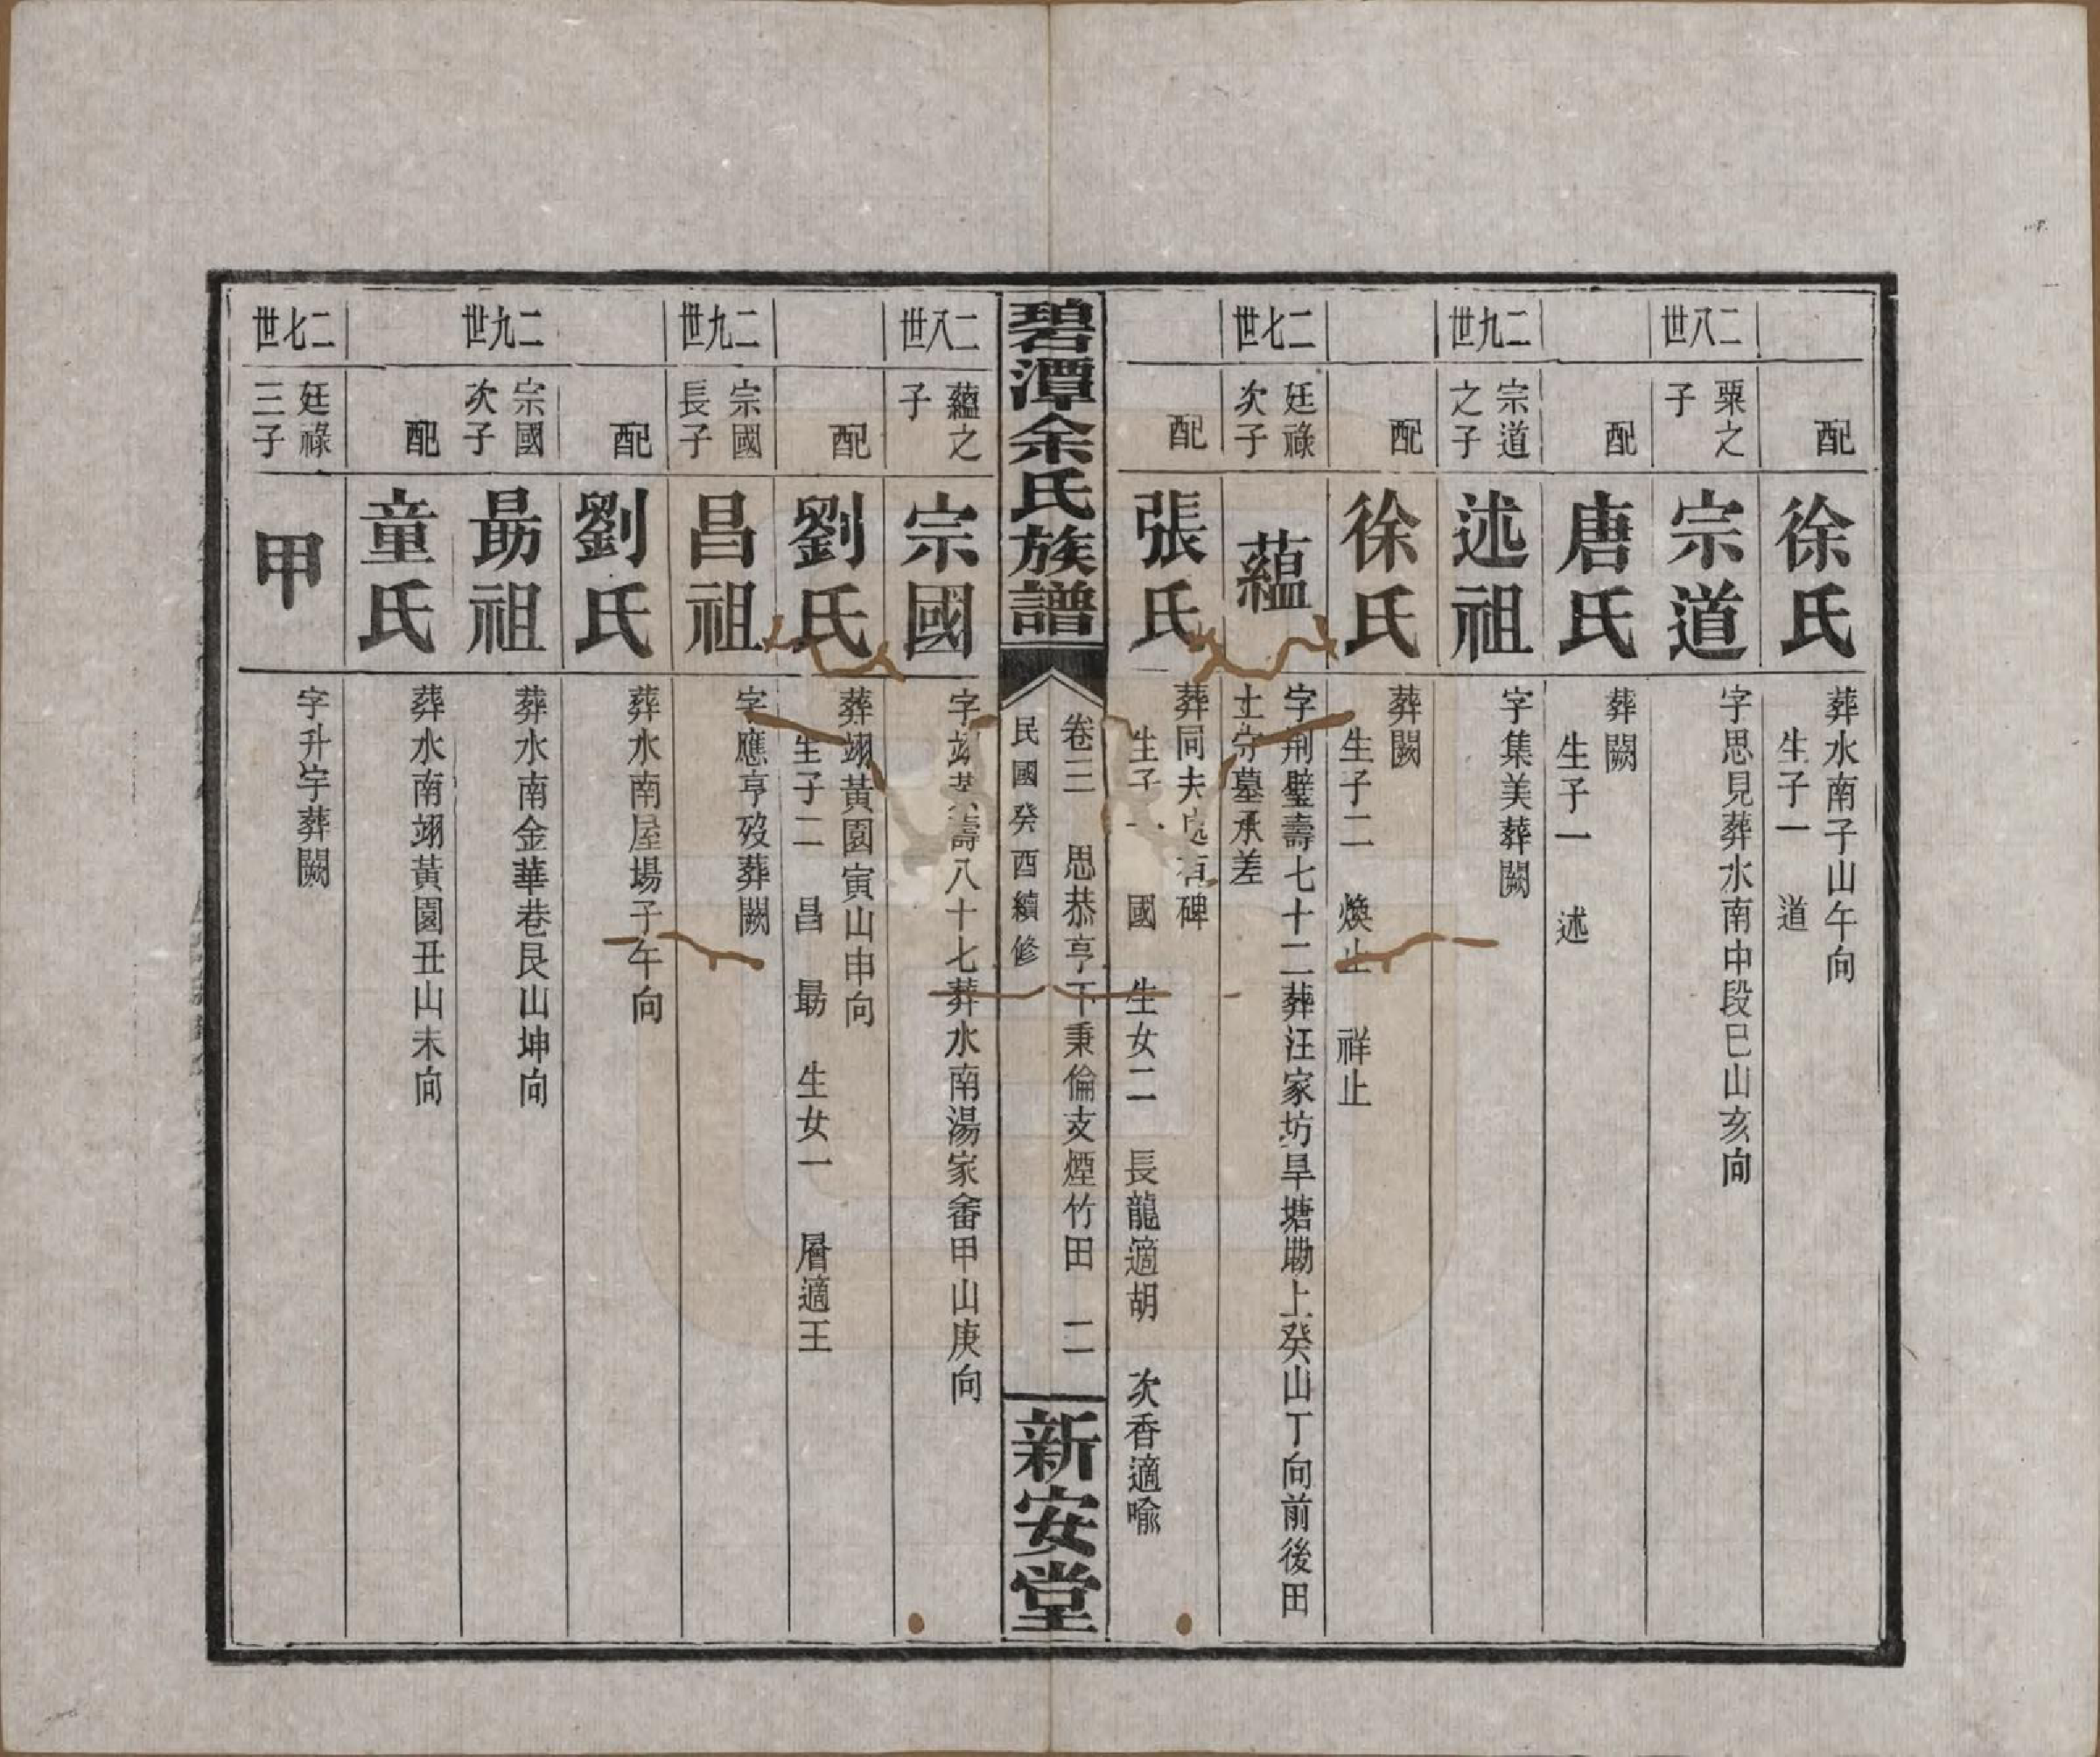 配
徐氏
葬水南子山午向
生子一 道
二八世
栗之
子
宗道
字思見葬水南中段巳山亥向
配
唐氏
葬闕
生子一 述
二九世
宗道
之子
述祖
字集美葬闕
配
徐氏
葬闕
生子二 煥止 祥止
二七世
廷祿
次子
蘊
字荆璧壽七十二葬汪家坊旱塘墈上癸山丁向前後田
土宗墓承差
配
張氏
葬同夫有碑
生子一 國 生女二 長龍適胡 次香適喻
碧潭余氏族譜
卷三 思恭亨下秉倫支煙竹田 二
民國癸酉續修
新安堂
二八世
蘊之
子
宗國
字壽八十七葬水南湯家畬甲山庚向
配
劉氏
葬翊黃園寅山申向
生子二 昌 勗 生女一 層適王
二九世
宗國
長子
昌祖
字應亨歿葬闕
配
劉氏
葬水南屋場子午向
二九世
宗國
次子
勗祖
葬水南金華巷艮山坤向
配
童氏
葬水南翊黃園丑山未向
二七世
廷祿
三子
甲
字升宇葬闕